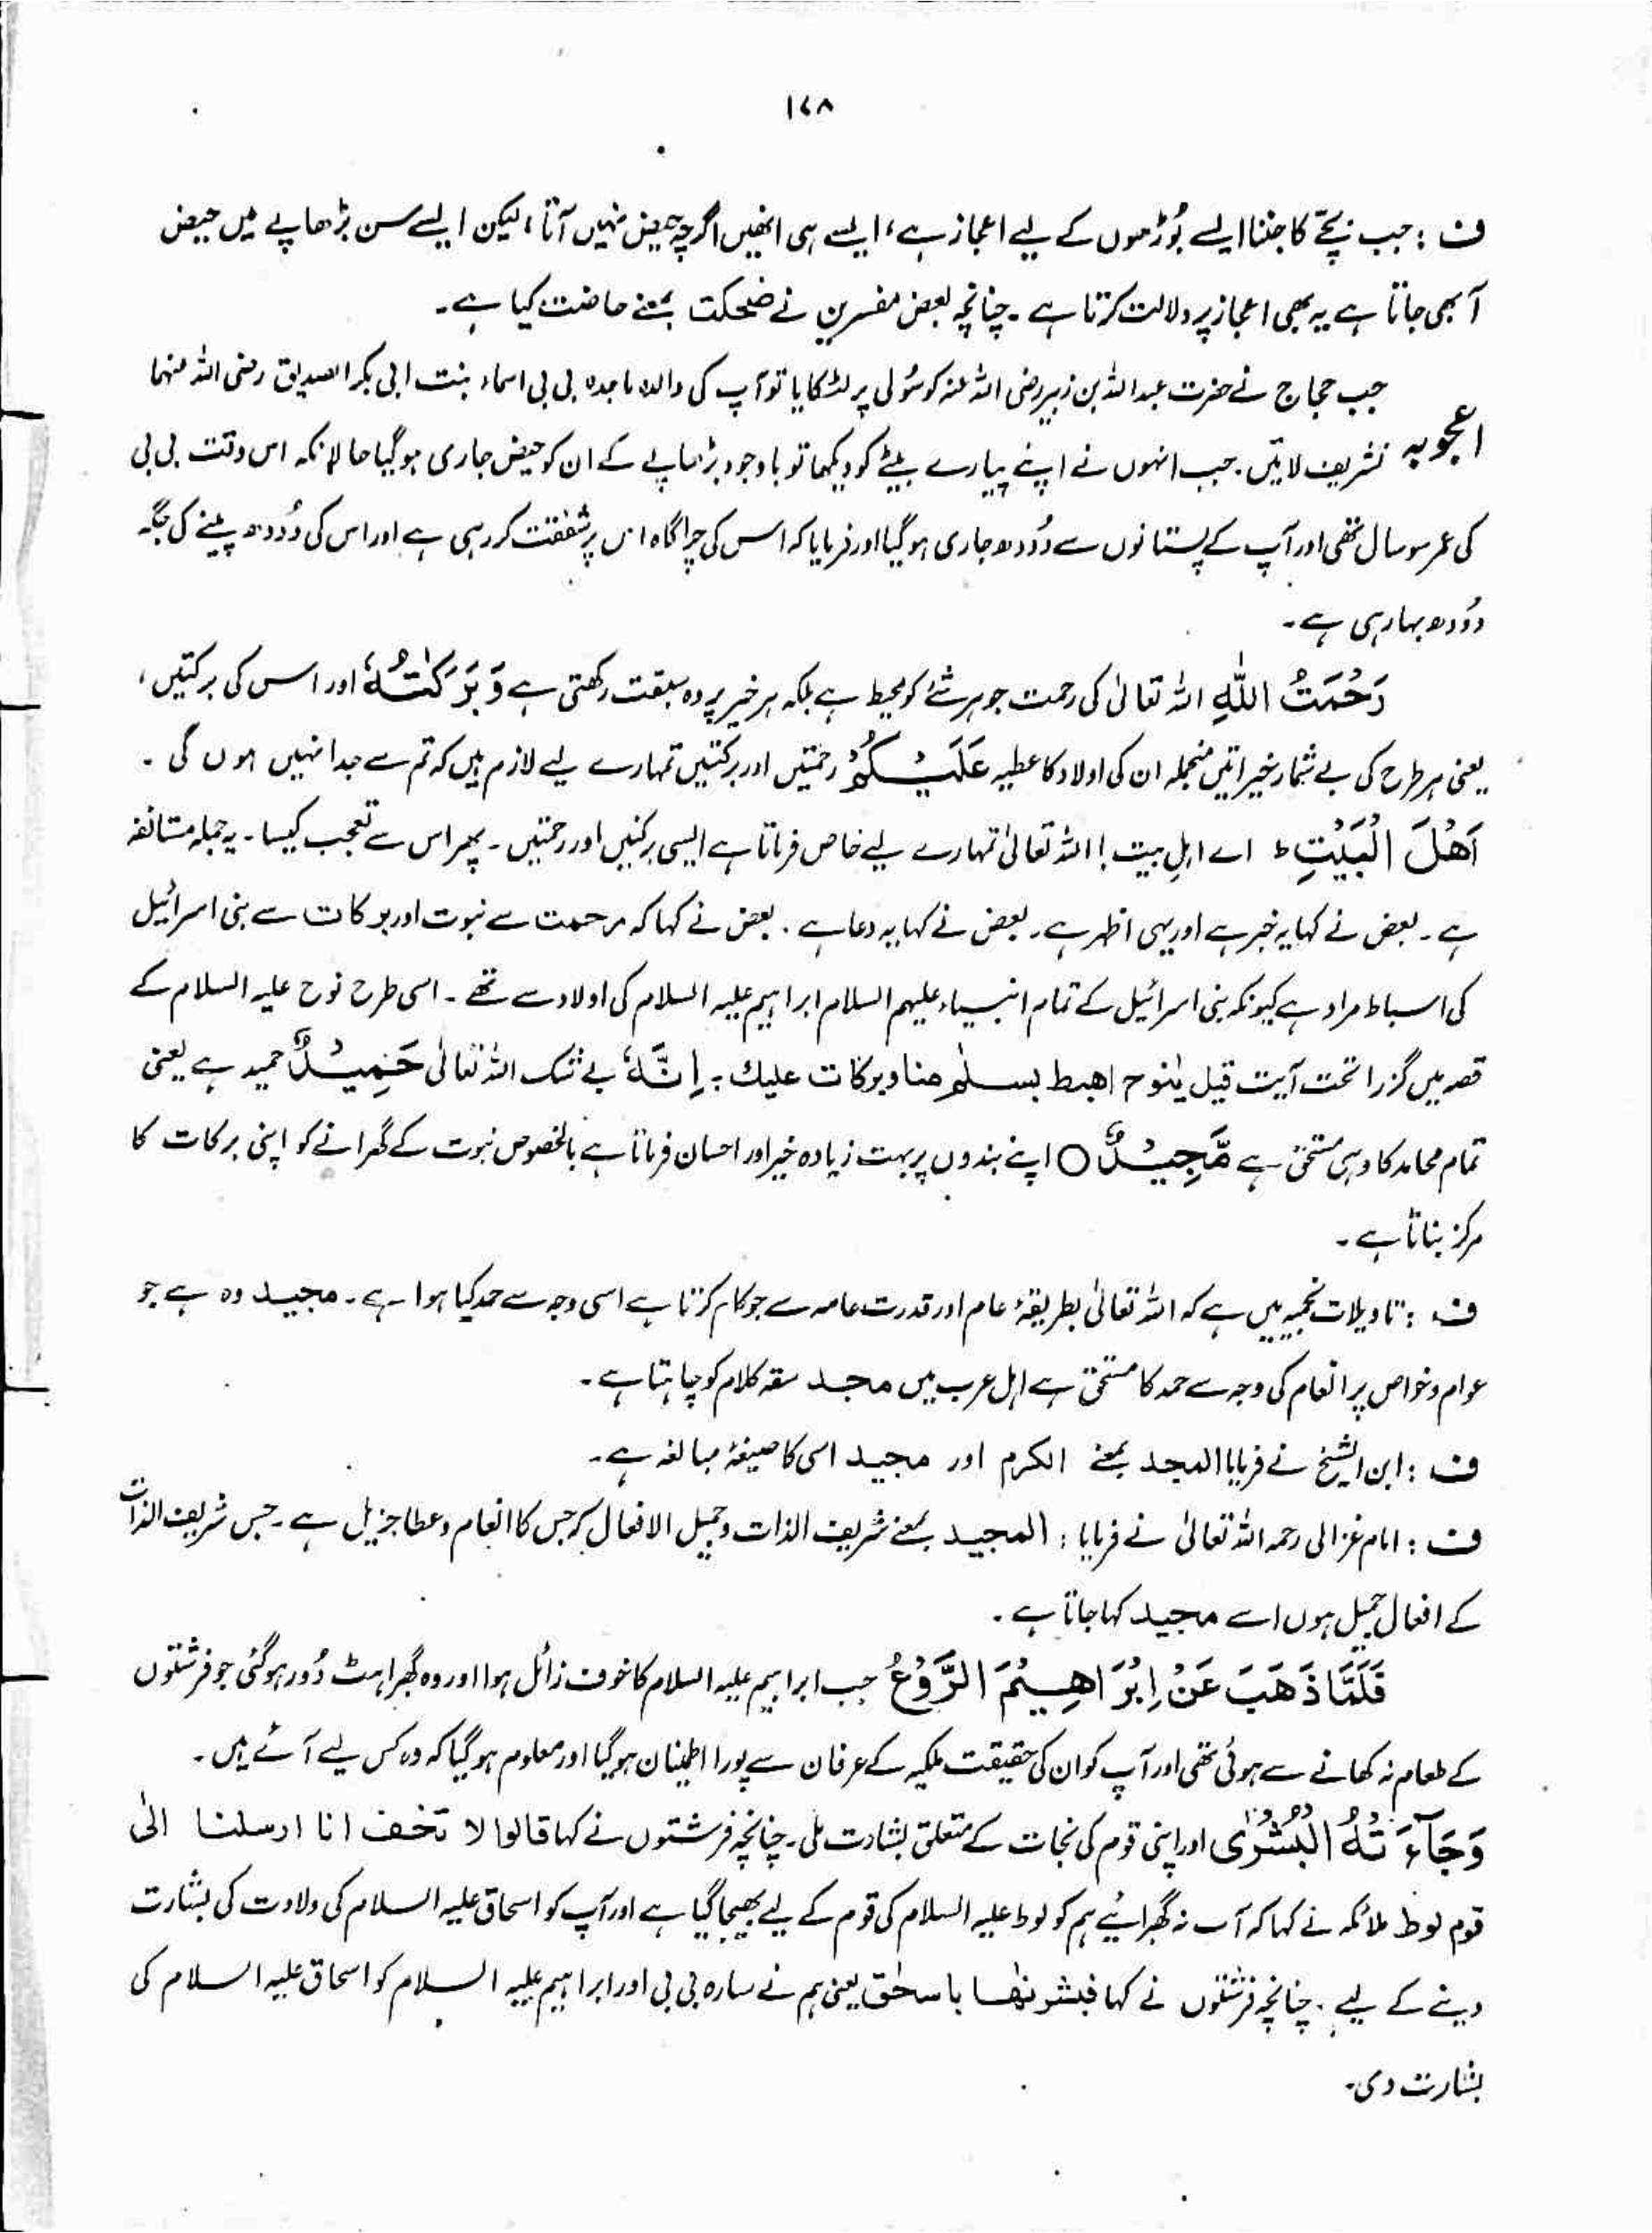 ۱۷۸
ف : جب بچے کا جننا ایسے بُوڑھوں کے لیے اعجاز ہے، ایسے ہی انھیں اگرچہ حیض نہیں آتا، لیکن ایسے سن بڑھاپے میں حیض
آ بھی جاتا ہے یہ بھی اعجاز پر دلالت کرتا ہے۔ چنانچہ بعض مفسرین نے ضحکت بمعنے حاضت کیا ہے۔
جب حجاج نے حضرت عبداللہ بن زبیر رضی اللہ عنہ کو سُولی پر لٹکایا تو آپ کی والدہ ماجدہ بی بی اسماء بنت ابی بکر الصدیق رضی اللہ عنہما
اعجوبہ تشریف لائیں۔ جب انہوں نے اپنے پیارے بیٹے کو دیکھا تو باوجود بڑھاپے کے ان کو حیض جاری ہوگیا حالانکہ اس وقت بی بی
کی عمر سو سال تھی اور آپ کے پستانوں سے دُودھ جاری ہوگیا اور فرمایا کہ اس کی چراگاہ اس پر شفقت کر رہی ہے اور اس کی دُودھ پینے کی جگہ
دُودھ بہا رہی ہے۔
رَحْمَتُ اللّٰهِ اللہ تعالیٰ کی رحمت جو ہر شے کو محیط ہے بلکہ ہر خیر پر وہ سبقت رکھتی ہے وَبَرَكٰتُهٗ اور اس کی برکتیں،
یعنی ہر طرح کی بے شمار خیراتیں منجملہ ان کی اولاد کا عطیہ عَلَيْكُمْ رحمتیں اور برکتیں تمہارے لیے لازم ہیں کہ تم سے جدا نہیں ہوں گی۔
اَهْلَ الْبَيْتِ ؕ اے اہلِ بیت! اللہ تعالیٰ تمہارے لیے خاص فرماتا ہے ایسی برکتیں اور رحمتیں۔ پھر اس سے تعجب کیسا۔ یہ جملہ مستانفہ
ہے۔ بعض نے کہا یہ خبر ہے اور یہی اظہر ہے۔ بعض نے کہا یہ دعا ہے۔ بعض نے کہا کہ رحمت سے نبوت اور برکات سے بنی اسرائیل
کی اسباط مراد ہے کیونکہ بنی اسرائیل کے تمام انبیاء علیہم السلام ابراہیم علیہ السلام کی اولاد سے تھے۔ اسی طرح نوح علیہ السلام کے
قصہ میں گزرا تحت آیت قیل ینٰوح اهبط بسلٰم منا وبرکات علیك ۔ اِنَّهٗ بے شک اللہ تعالیٰ حَمِيْدٌ حمید ہے یعنی
تمام محامد کا وہی مستحق ہے مَّجِيْدٌ ○ اپنے بندوں پر بہت زیادہ خیر اور احسان فرماتا ہے بالخصوص نبوت کے گھرانے کو اپنی برکات کا
مرکز بناتا ہے۔
ف : تاویلات نجمیہ میں ہے کہ اللہ تعالیٰ بطریقۂ عام اور قدرت عامہ سے جو کام کرتا ہے اسی وجہ سے حمد کیا ہوا ہے۔ مجید وہ ہے جو
عوام و خواص پر انعام کی وجہ سے حمد کا مستحق ہے اہل عرب میں مجد سقہ کلام کو چاہتا ہے۔
ف : ابن الشیخ نے فرمایا المجد بمعنے الکرم اور مجید اسی کا صیغۂ مبالغہ ہے۔
ف : امام غزالی رحمہ اللہ تعالیٰ نے فرمایا : المجید بمعنے شریف الذات و جمیل الافعال کہ جس کا انعام و عطا جزیل ہے۔ جس شریف الذات
کے افعال جمیل ہوں اسے مجید کہا جاتا ہے۔
فَلَمَّا ذَهَبَ عَنْ اِبْرَاهِيْمَ الرَّوْعُ جب ابراہیم علیہ السلام کا خوف زائل ہوا اور وہ گھبراہٹ دُور ہوگئی جو فرشتوں
کے طعام نہ کھانے سے ہوئی تھی اور آپ کو ان کی حقیقت ملکیہ کے عرفان سے پورا اطمینان ہوگیا اور معلوم ہوگیا کہ وہ کس لیے آئے ہیں۔
وَجَآءَتْهُ الْبُشْرٰى اور اپنی قوم کی نجات کے متعلق بشارت ملی۔ چنانچہ فرشتوں نے کہا قالوا لا تخف انا ارسلنا الیٰ
قوم لوط ملائکہ نے کہا کہ آپ نہ گھبرائیے ہم کو لوط علیہ السلام کی قوم کے لیے بھیجا گیا ہے اور آپ کو اسحاق علیہ السلام کی ولادت کی بشارت
دینے کے لیے۔ چنانچہ فرشتوں نے کہا فبشرنٰها باسحٰق یعنی ہم نے سارہ بی بی اور ابراہیم علیہ السلام کو اسحاق علیہ السلام کی
بشارت دی۔